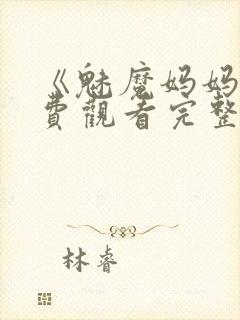 《魅魔妈妈
費觀看完整
林睿